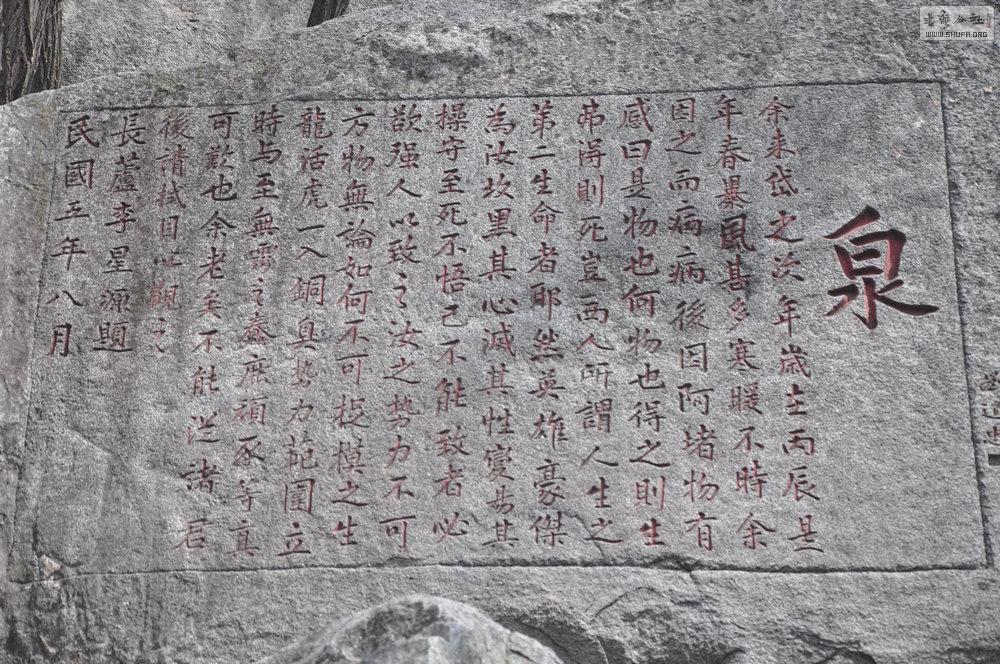 泉
余来岱之次年歲在丙辰是
年春暴風甚多寒暖不時余
因之而病病後因阿堵物有
感曰是物也何物也得之則生
弗得則死豈西人所謂人生之
第二生命者耶然英雄豪傑
為汝坎黑其心滅其性變易其
操守至死不悟己不能致者必
欲强人以致之汝之勢力不可
方物無論如何不可校模之生
龍活虎一入銅臭勢力範圍立
時与至無霛之蠢庶頑豕等真
可歎也余老矣不能從諸君
後請拭目以觀之
長蘆李星源題
民國五年八月
WWW.SHUFA.ORG